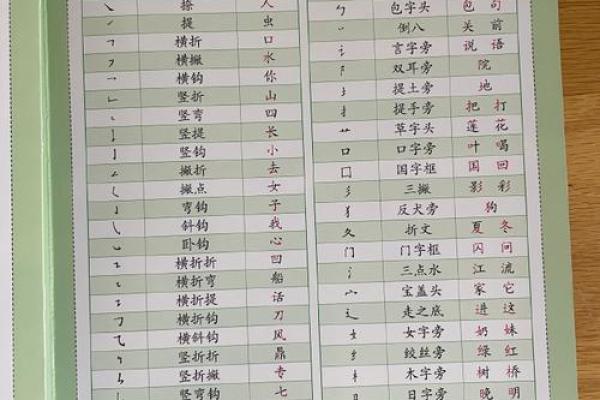 ㇏ 捺 人
㇀ 提 虫
㇕ 横折 口
㇇ 横撇 水
㇖ 横钩 你
㇗ 竖折 山
㇄ 竖弯 四
㇙ 竖提 长
亅 竖钩 小
㇜ 撇折 去
㇛ 撇点 女
㇁ 弯钩 子
㇂ 斜钩 我
㇃ 卧钩 心
㇅ 横折折 凹
㇍ 横折弯 船
㇊ 横折提 话
㇆ 横折钩 刀
⺄ 横斜钩 风
竖折折 鼎
竖折撇 专
竖弯钩 七
勹 包字头 包 句
丷 倒八 头 前
讠 言字旁 说 语
阝 双耳旁 院
提土旁 地
扌 提手旁 把 打
艹 草字头 莲 花
口 口字旁 叶 喝
囗 国字框 国 回
彡 三撇 影 彩
犭 反犬旁 狗
夂 折文 夏 冬
门 门字框 闪 问
氵 三点水 江 流
宀 宝盖头 家 它
辶 走之底 进 这
女 女字旁 奶 妹
纟 绞丝旁 绿 红
木 木字旁 树 桥
日 日字旁 晚 明